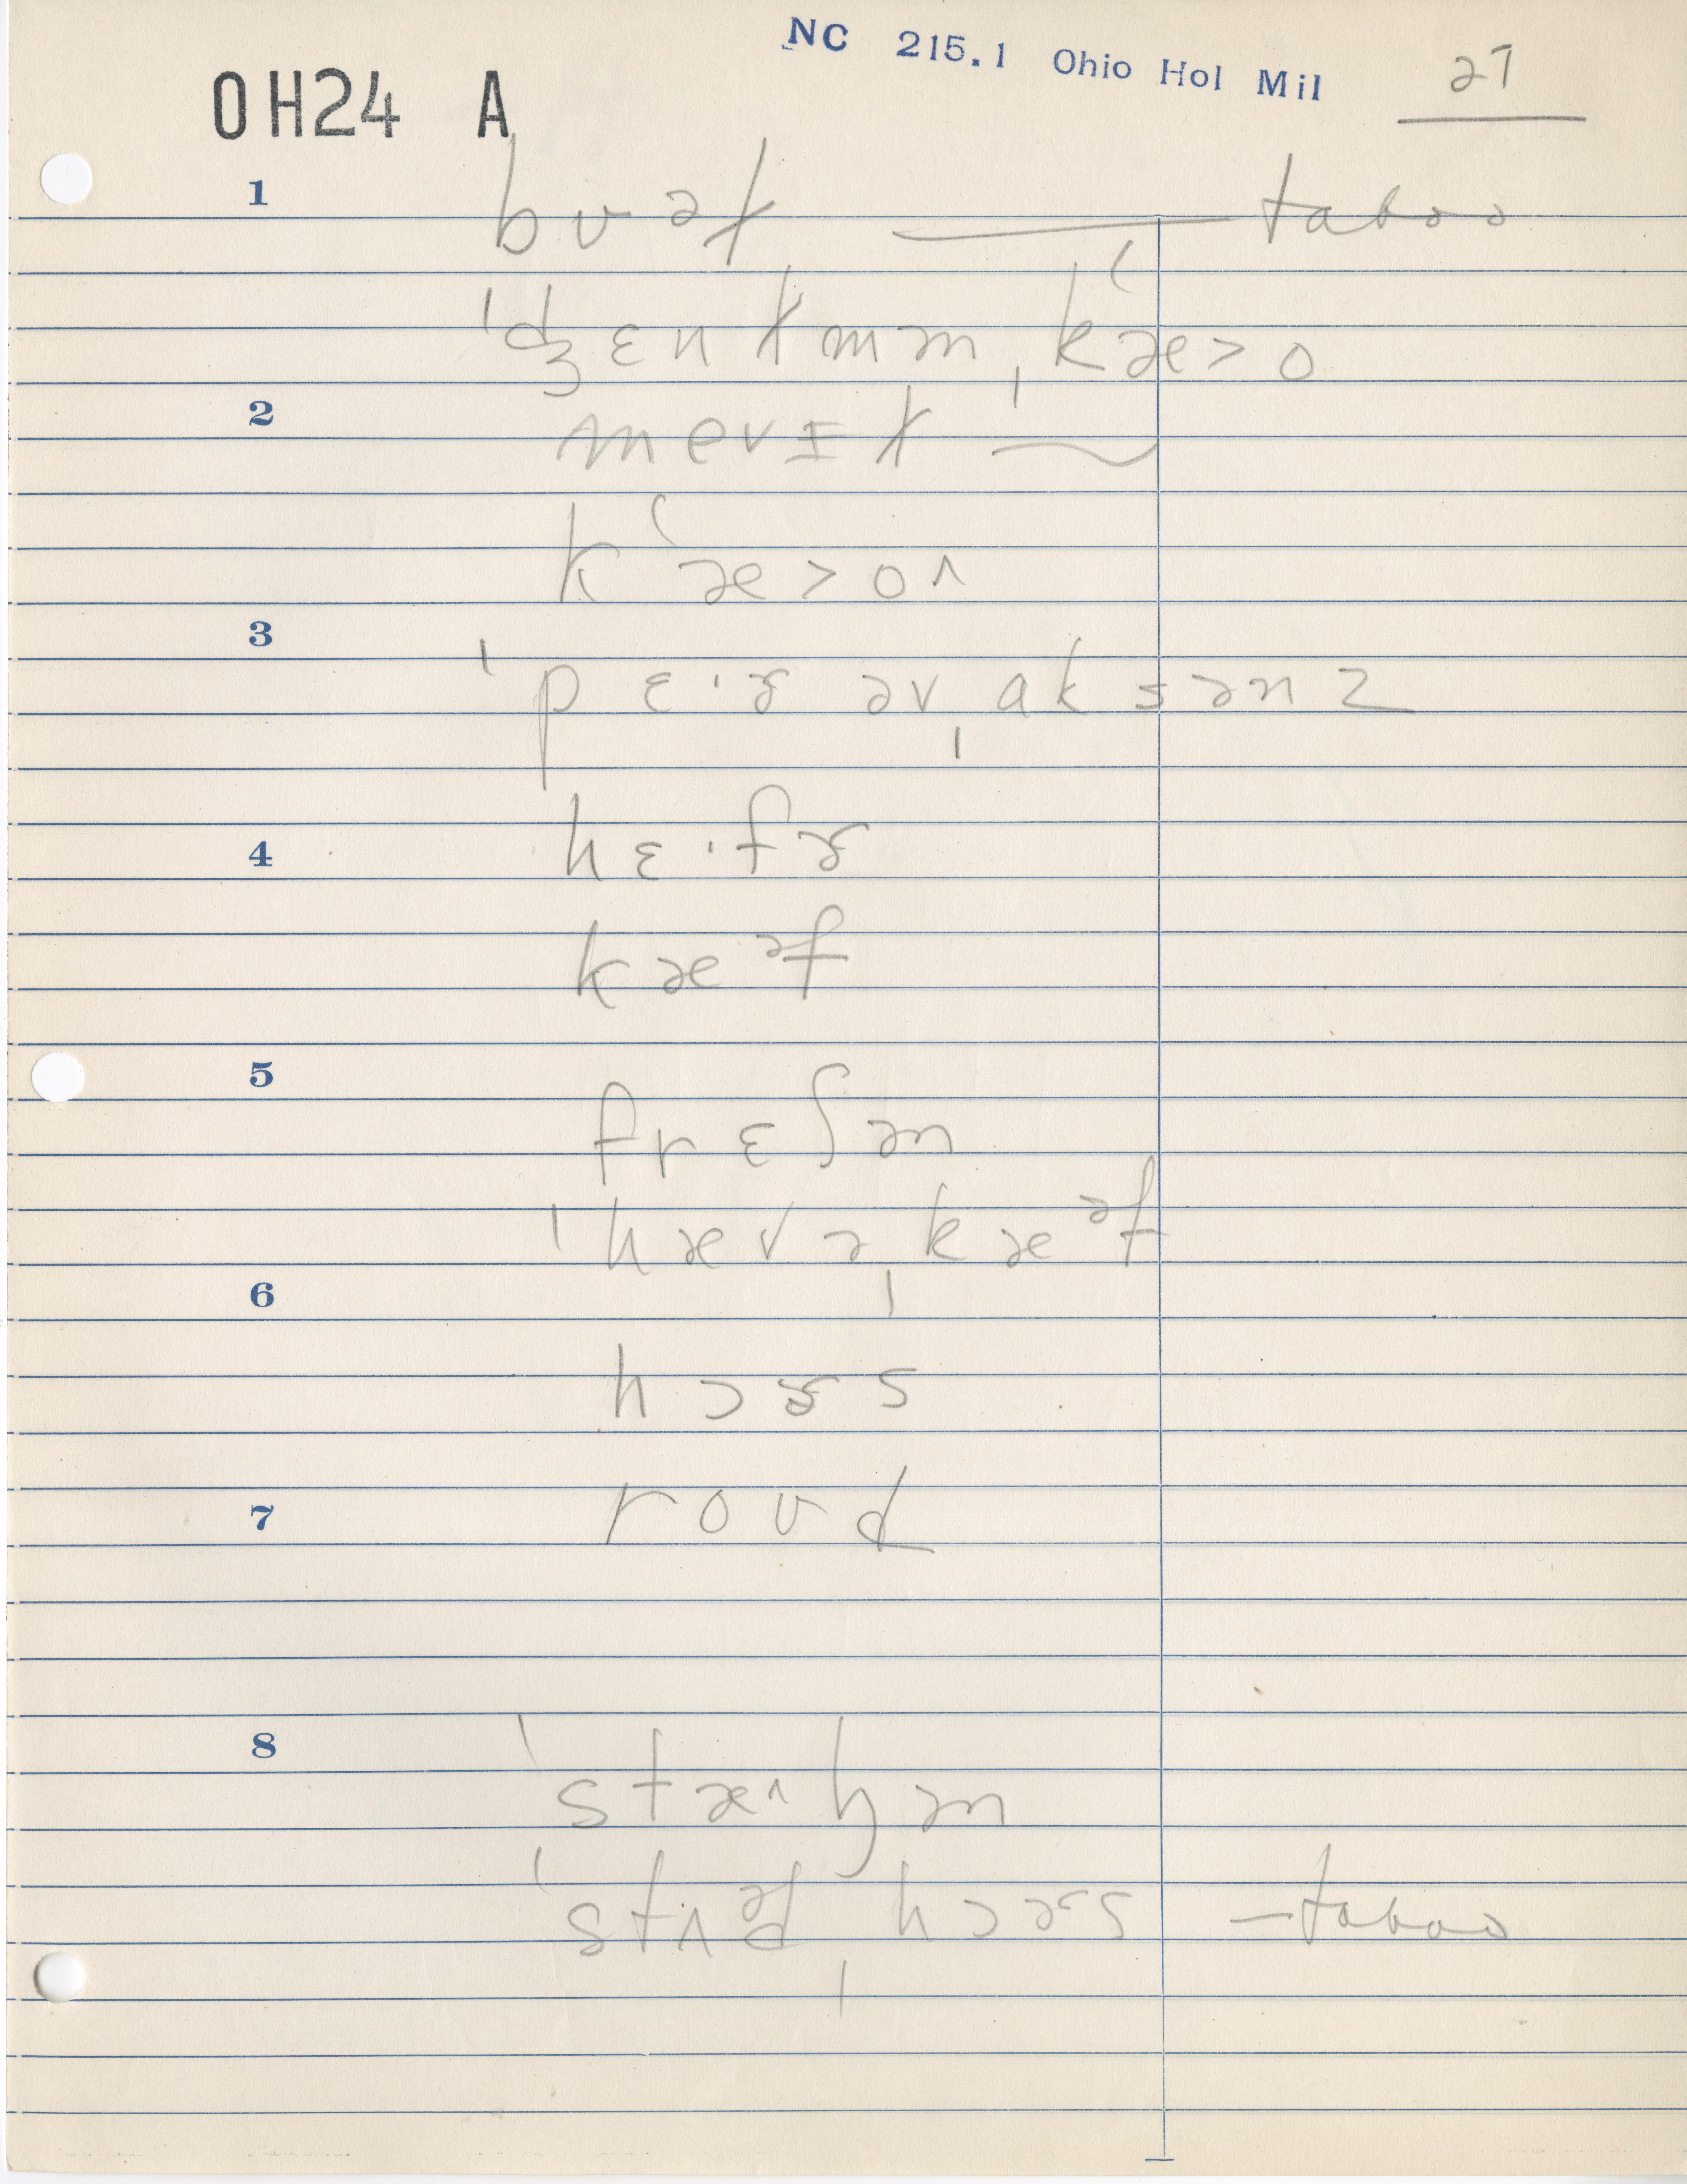 NC 215.1 Ohio Hol Mil 27
OH24 A
1 bʊəɫ — taboo
ˈʤɛnɫmənˌkʽæ>o
2 meʊɪɫ ~
kʽæ>o^
3 ˈpɛ·ɚ əvˌɑksənz
4 hɛ·fɚ
kæᵊf
5 frɛʃən
ˈhæv əˌkæᵊf
6 hɔɚs
7 roʊd
8 ˈstæ^ljən
ˈstʌᵊdˌhɔɚs — taboo